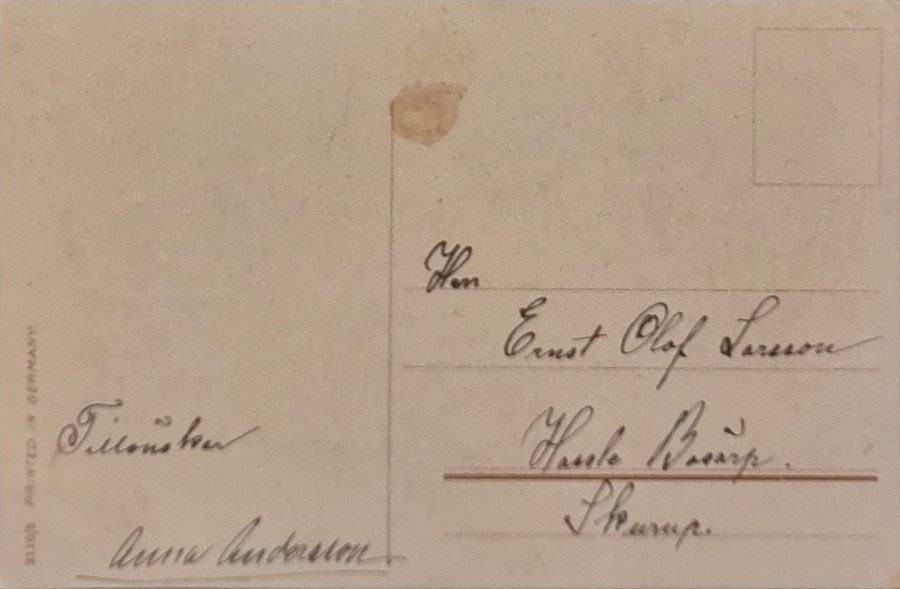 Herr
Ernst Olof Larsson
Hassle Bösarp.
Skurup.
Tillönskar
Anna Andersson
PRINTED IN GERMANY